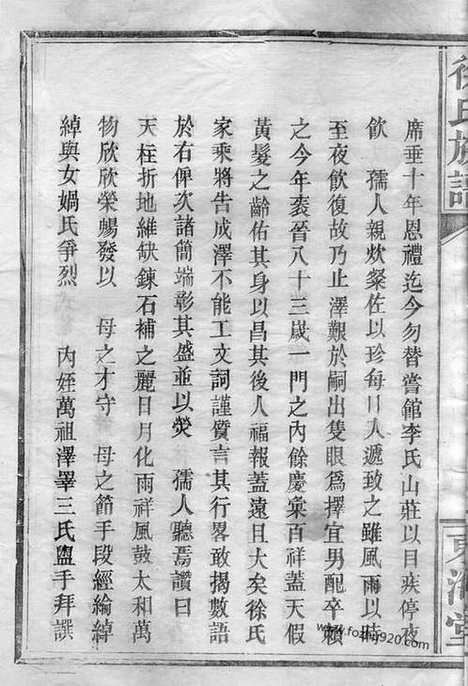 徐氏族譜
東海堂
席垂十年恩禮迄今勿替嘗館李氏山莊以目疾停夜
飲 孺人親炊粲佐以珍每日人遞致之雖風雨以時
至夜飲復故乃止澤艱於嗣出隻眼為擇宜男配卒賴
之今年袠晉八十三歲一門之內餘慶彙百祥蓋天假
黃髮之齡佑其身以昌其後人福報蓋遠且大矣徐氏
家乘將告成澤不能工文詞謹質言其行畧敢揭數語
於右俾次諸簡端彰其盛並以熒 孺人聽焉讚曰
天柱折地維缺鍊石補之麗日月化雨祥風鼓太和萬
物欣欣榮暢發以 母之才守 母之節手段經綸綽
綽與女媧氏爭烈 內姪萬祖澤睪三氏盥手拜譔
www.fozhu920.com